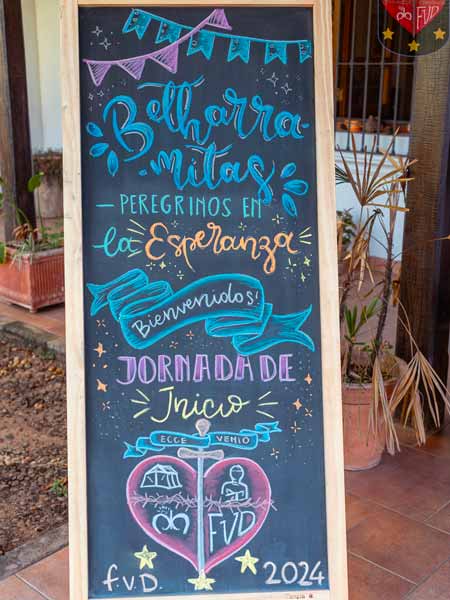 Belharra
mitas
— PEREGRINOS EN
la Esperanza
Bienvenidos!
JORNADA DE
Inicio
ECCE VENIO
FVD
f.v.D. 2024
FVD